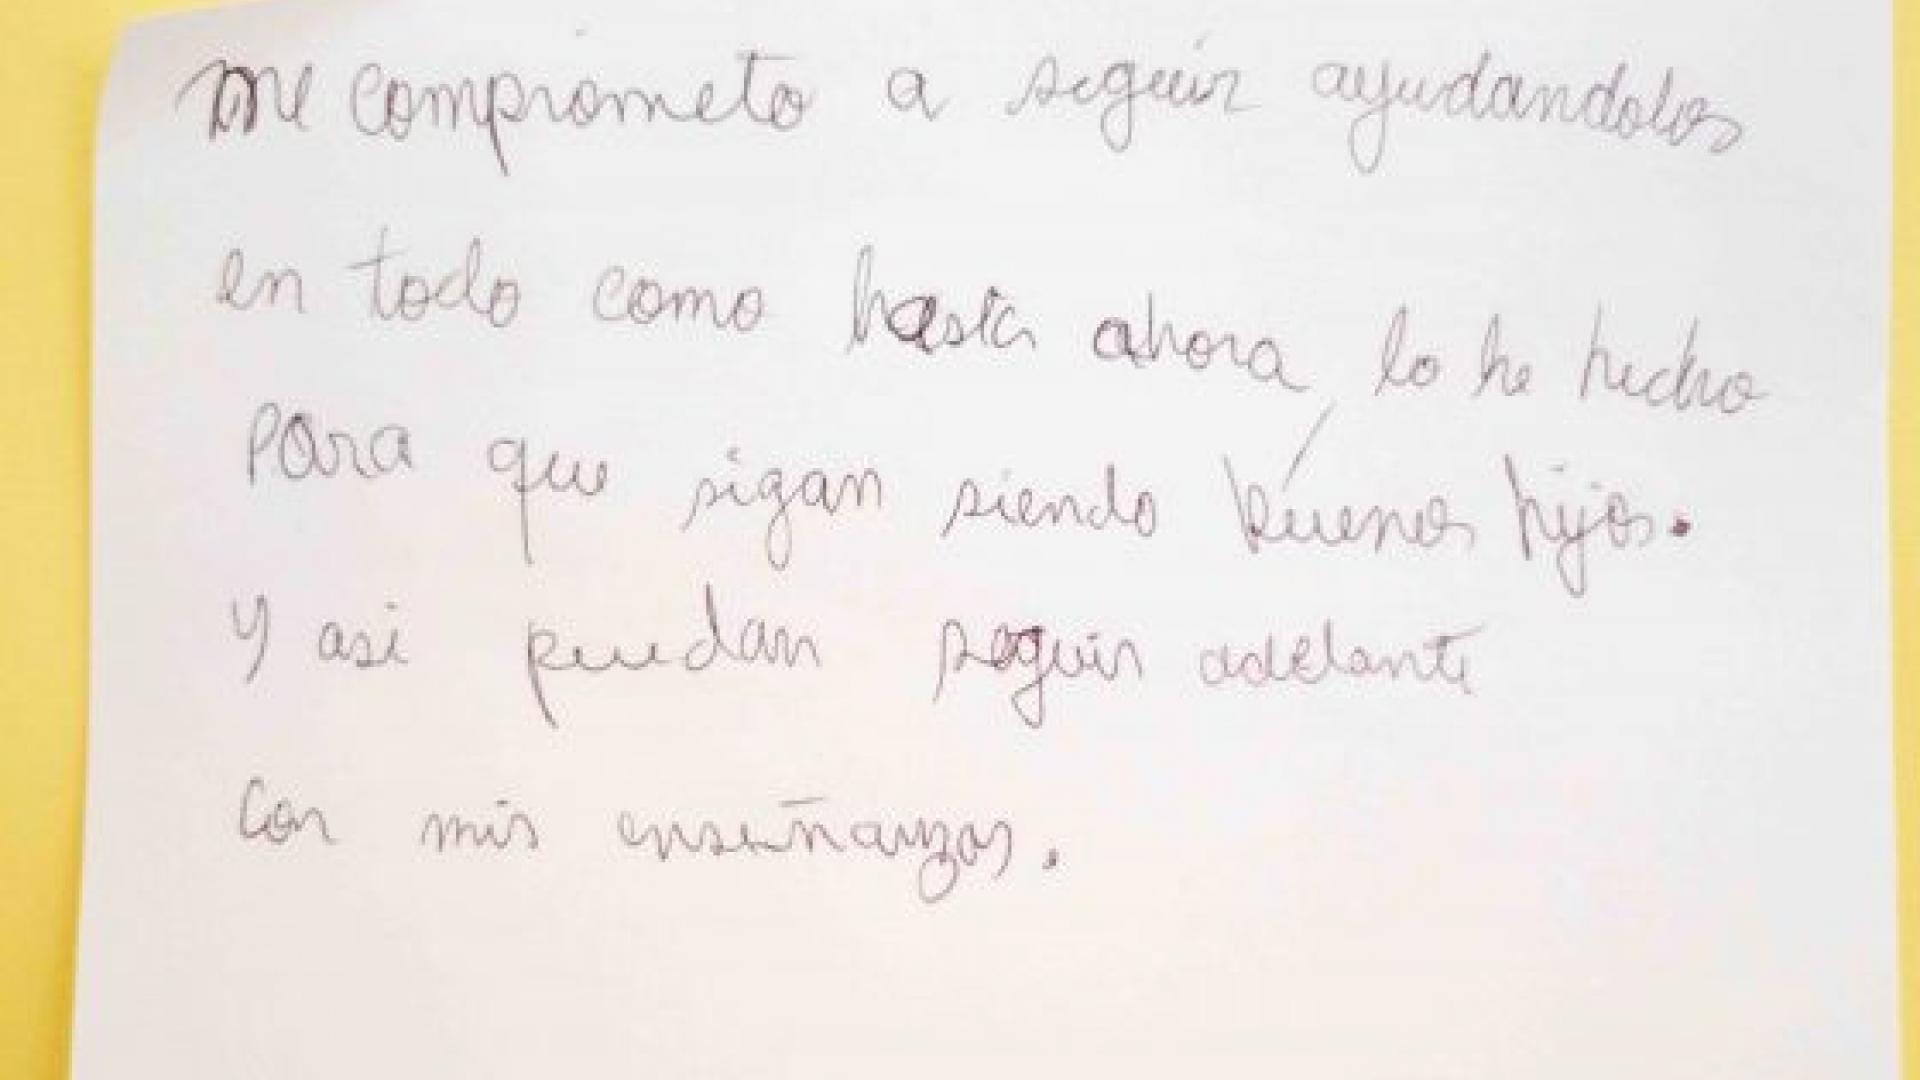 me comprometo a seguir ayudandolos
en todo como hasta ahora, lo he hecho
para que sigan siendo buenos hijos.
Y asi puedan seguir adelante
con mis enseñanzas.